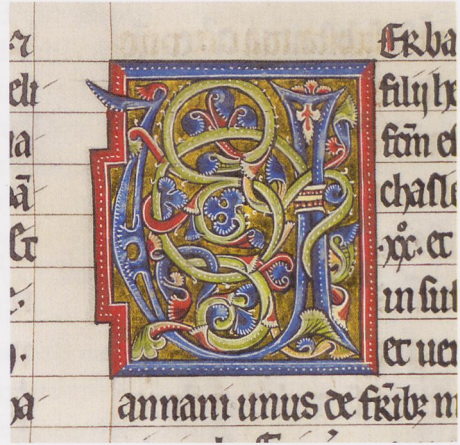 eli
Et
U
ERba
filij he
fc̄m e
chasle
·xx̊· et
in sus
et uen
annani unus de fr̄ibꝫ m